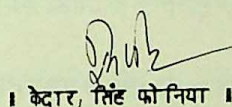 । केदार, सिंह फोनिया ।